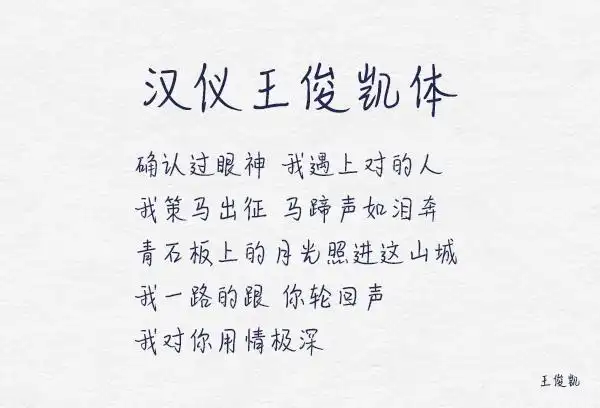 汉仪王俊凯体
确认过眼神 我遇上对的人
我策马出征 马蹄声如泪奔
青石板上的月光照进这山城
我一路的跟 你轮回声
我对你用情极深
王俊凯